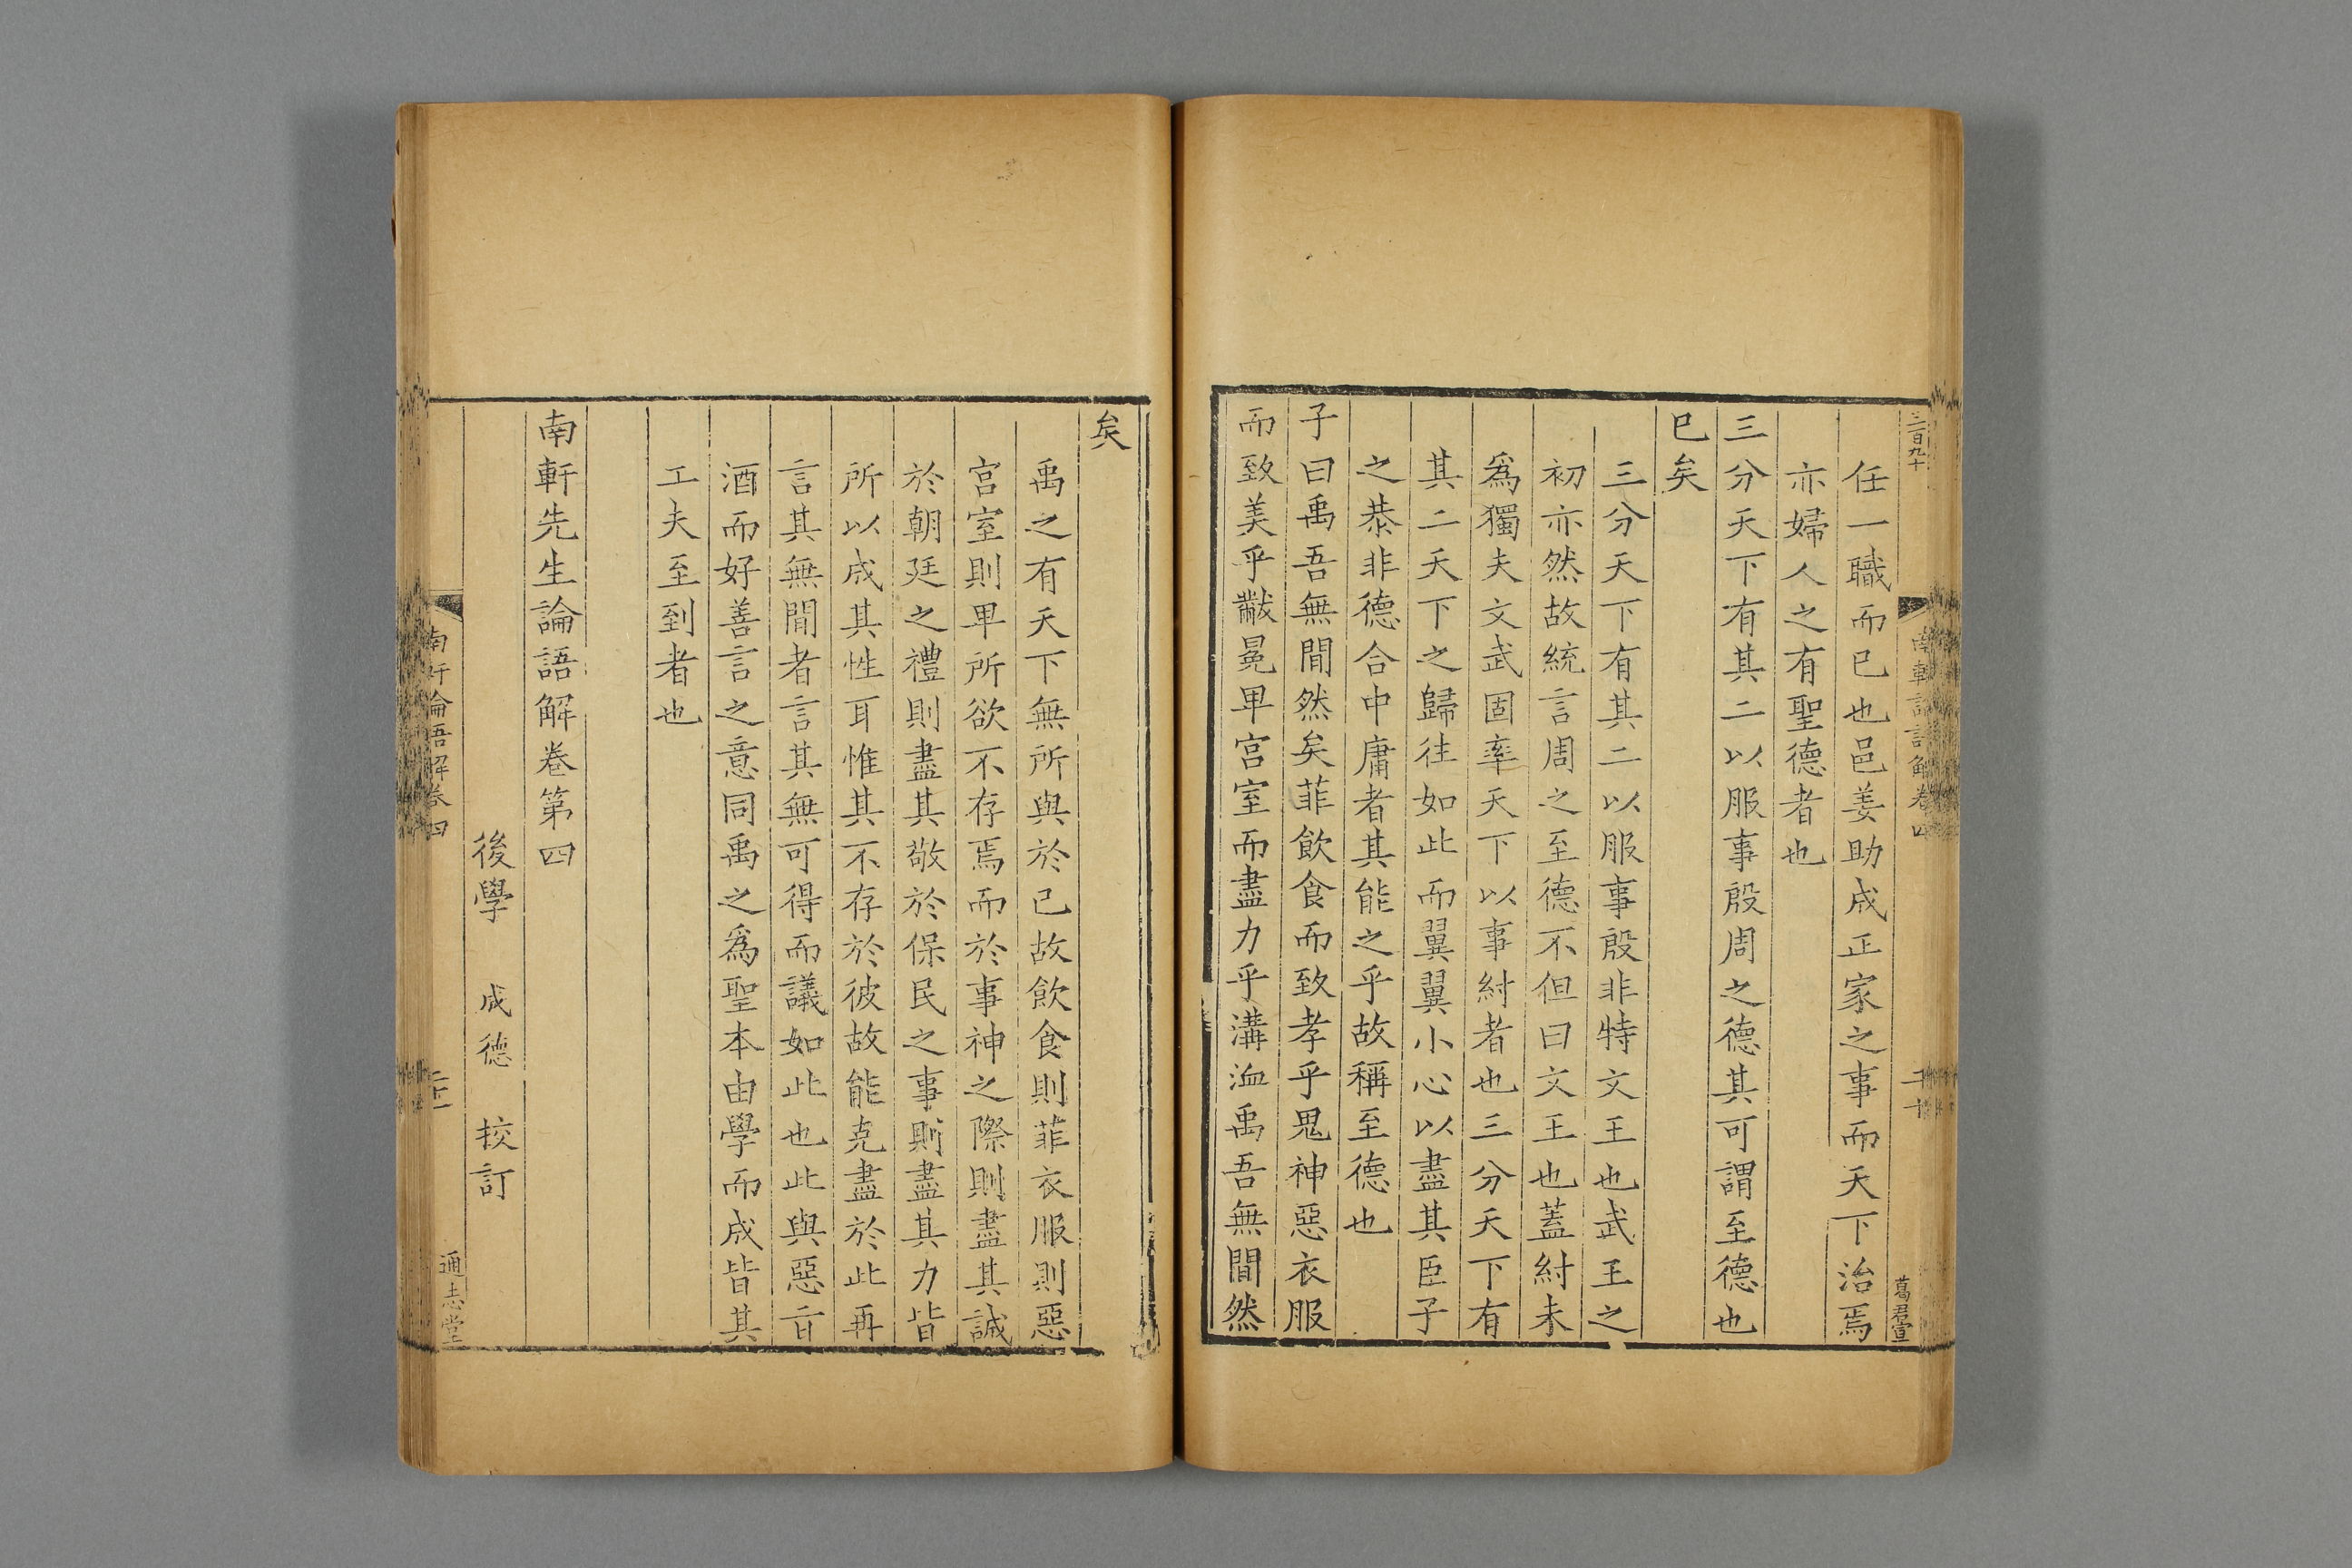 三百九十
南軒論語解卷四
二十
葛君宣
任一職而已也邑姜助成正家之事而天下治焉
亦婦人之有聖德者也
三分天下有其二以服事殷周之德其可謂至德也
已矣
三分天下有其二以服事殷非特文王也武王之
初亦然故統言周之至德不但曰文王也蓋紂未
爲獨夫文武固率天下以事紂者也三分天下有
其二天下之歸往如此而翼翼小心以盡其臣子
之恭非德合中庸者其能之乎故稱至德也
子曰禹吾無間然矣菲飲食而致孝乎鬼神惡衣服
而致美乎黻冕卑宮室而盡力乎溝洫禹吾無間然
矣
禹之有天下無所與於己故飲食則菲衣服則惡
宮室則卑所欲不存焉而於事神之際則盡其誠
於朝廷之禮則盡其敬於保民之事則盡其力皆
所以成其性耳惟其不存於彼故能克盡於此再
言其無間者言其無可得而議如此也此與惡旨
酒而好善言之意同禹之爲聖本由學而成皆其
工夫至到者也
南軒先生論語解卷第四
後學 成德 挍訂
南軒論語解卷四
通志堂